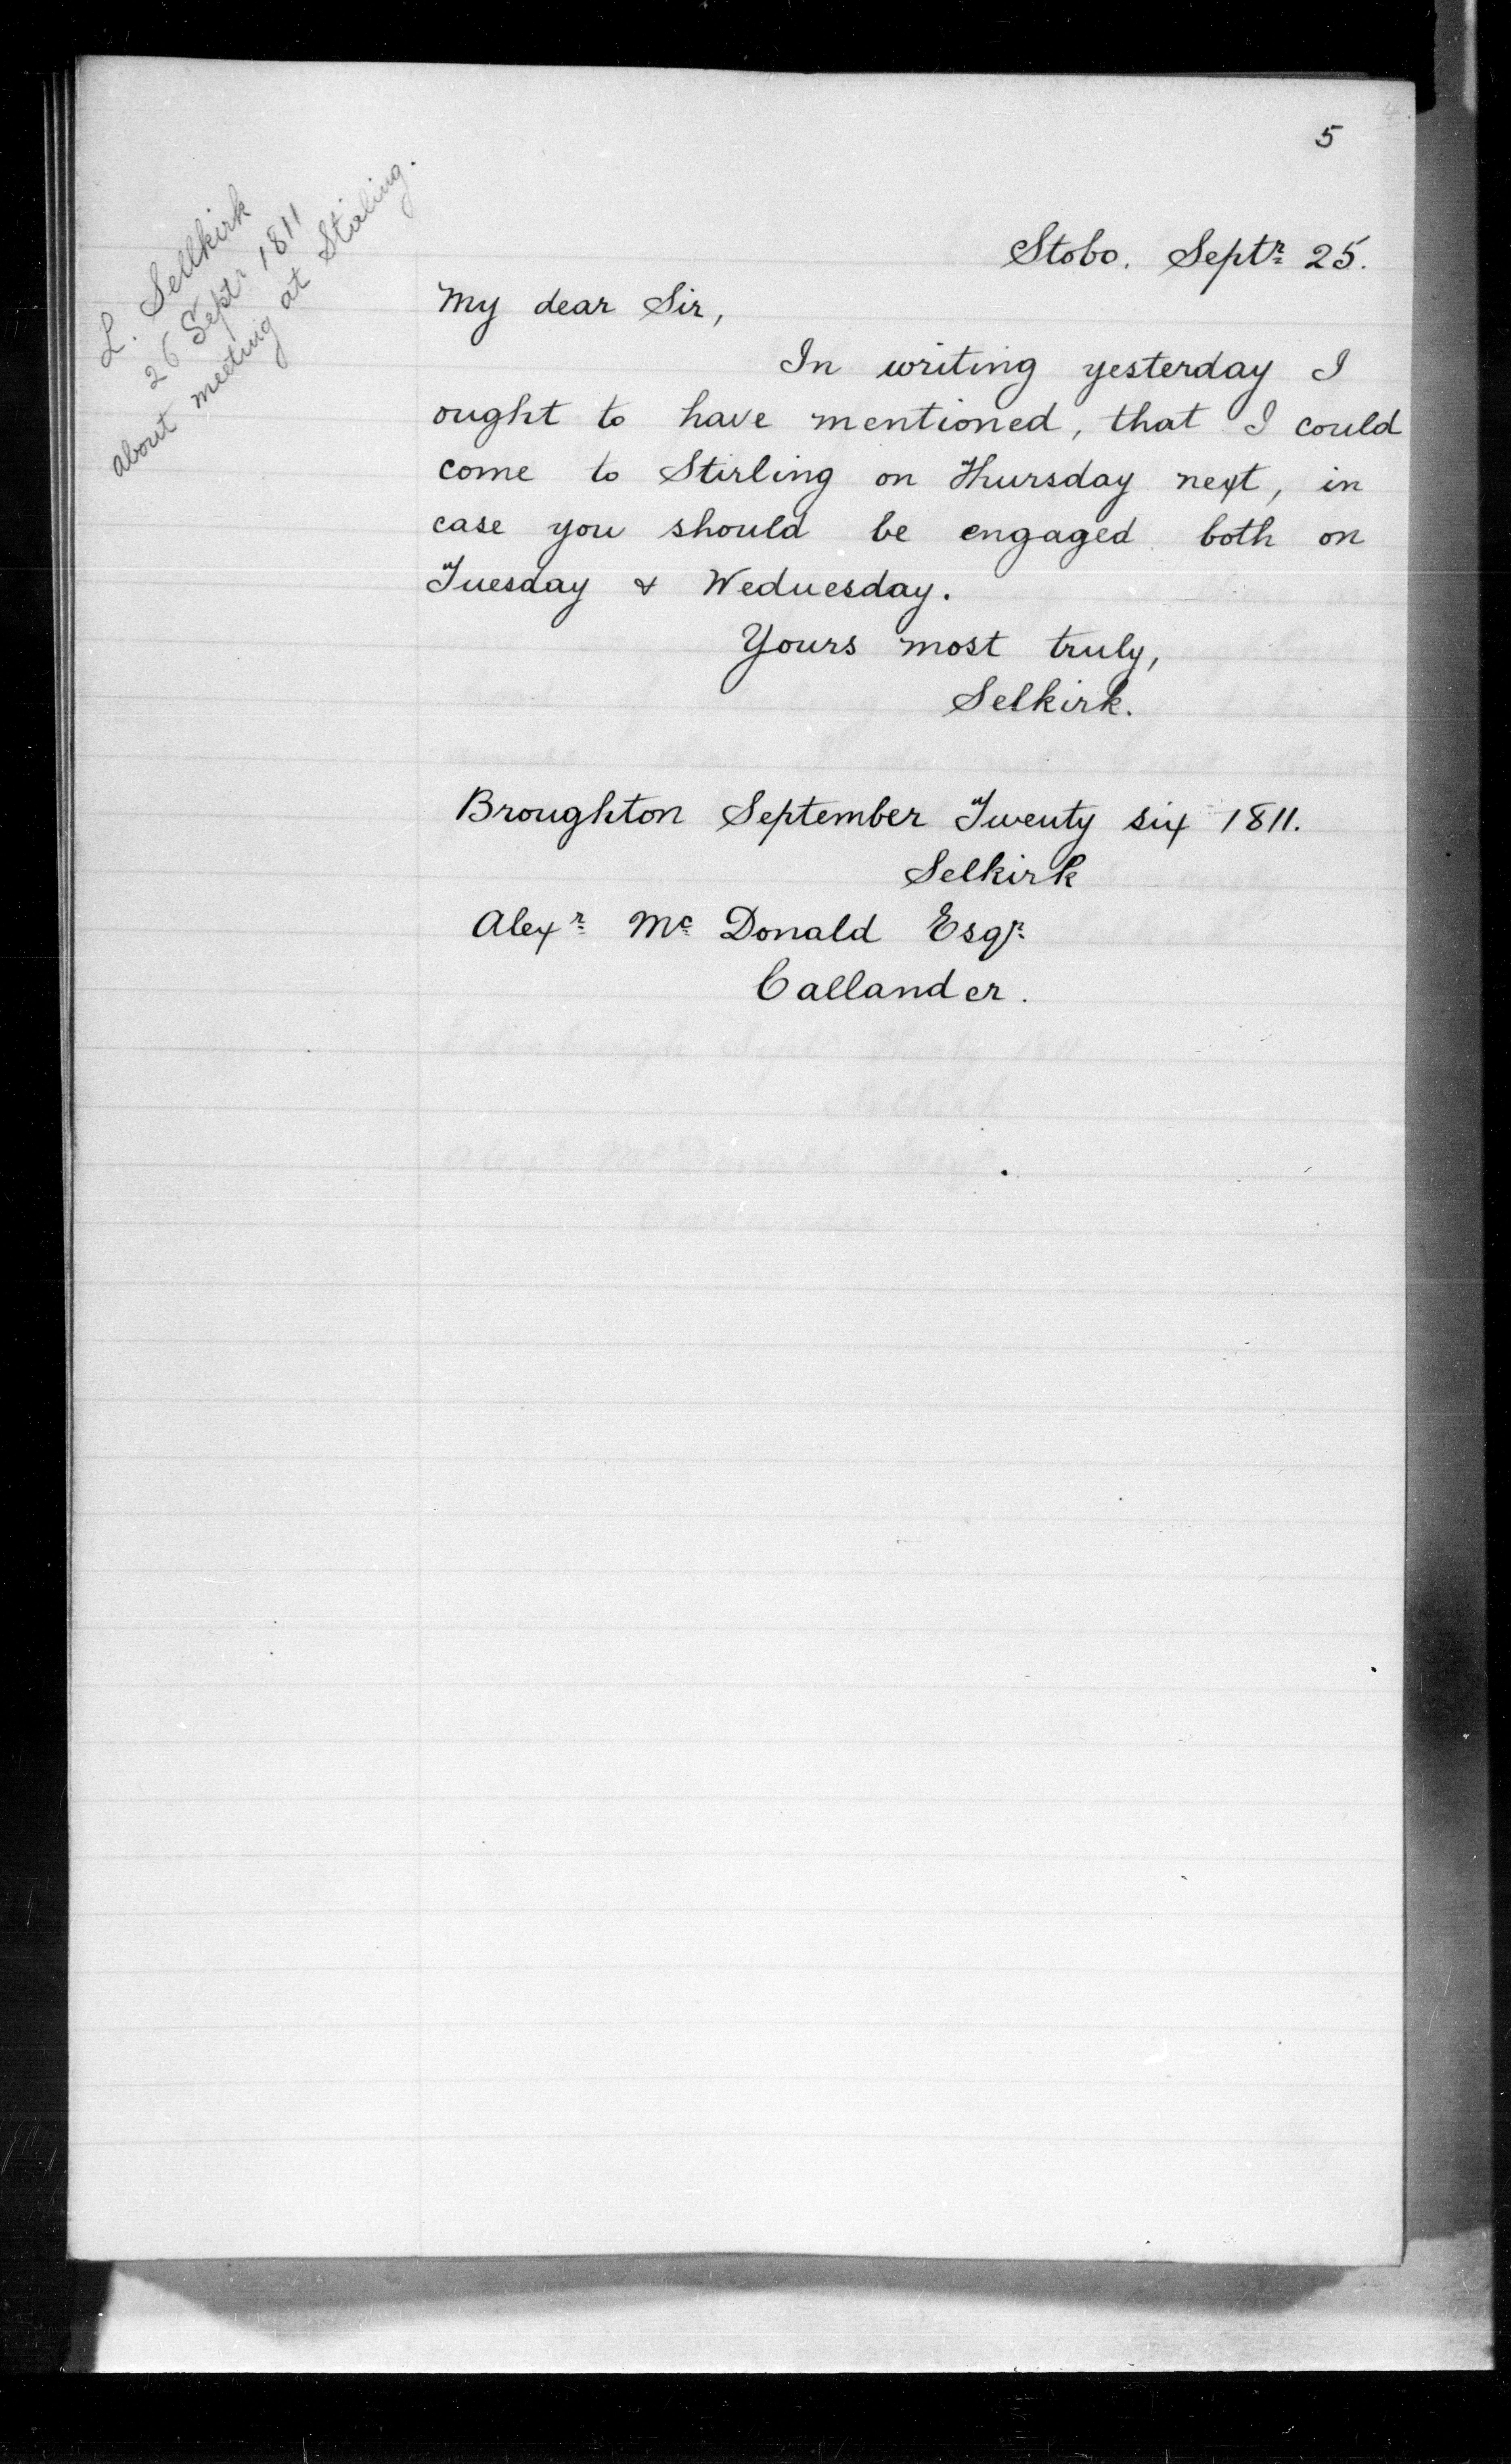 5
L. Sellkirk
26 Septr 1811
about meeting at Stirling.
Stobo. Septr 25.
My dear Sir,
In writing yesterday I
ought to have mentioned, that I could
come to Stirling on Thursday next, in
case you should be engaged both on
Tuesday & Wednesday.
Yours most truly,
Selkirk.
Broughton September Twenty six 1811.
Selkirk
Alexr Mc Donald Esqr
Callander.